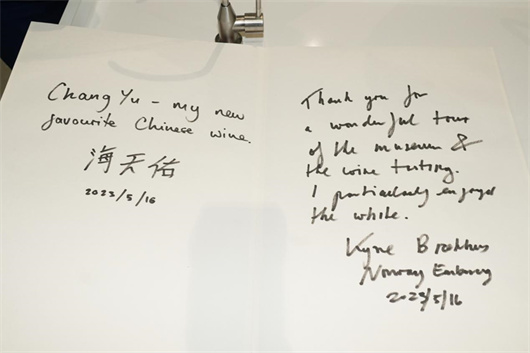 ChangYu – my new
favourite Chinese wine.
海天佑
2023/5/16
Thank you for
a wonderful tour
of the museum &
the wine tasting.
I particularly enjoyed
the white.
Norway Embassy
2023/5/16